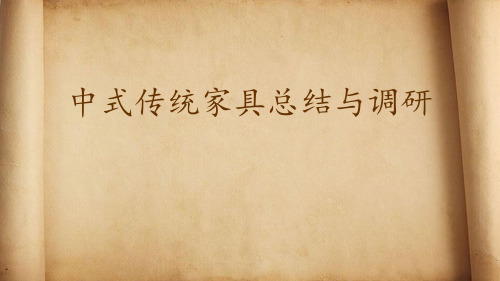 中式传统家具总结与调研